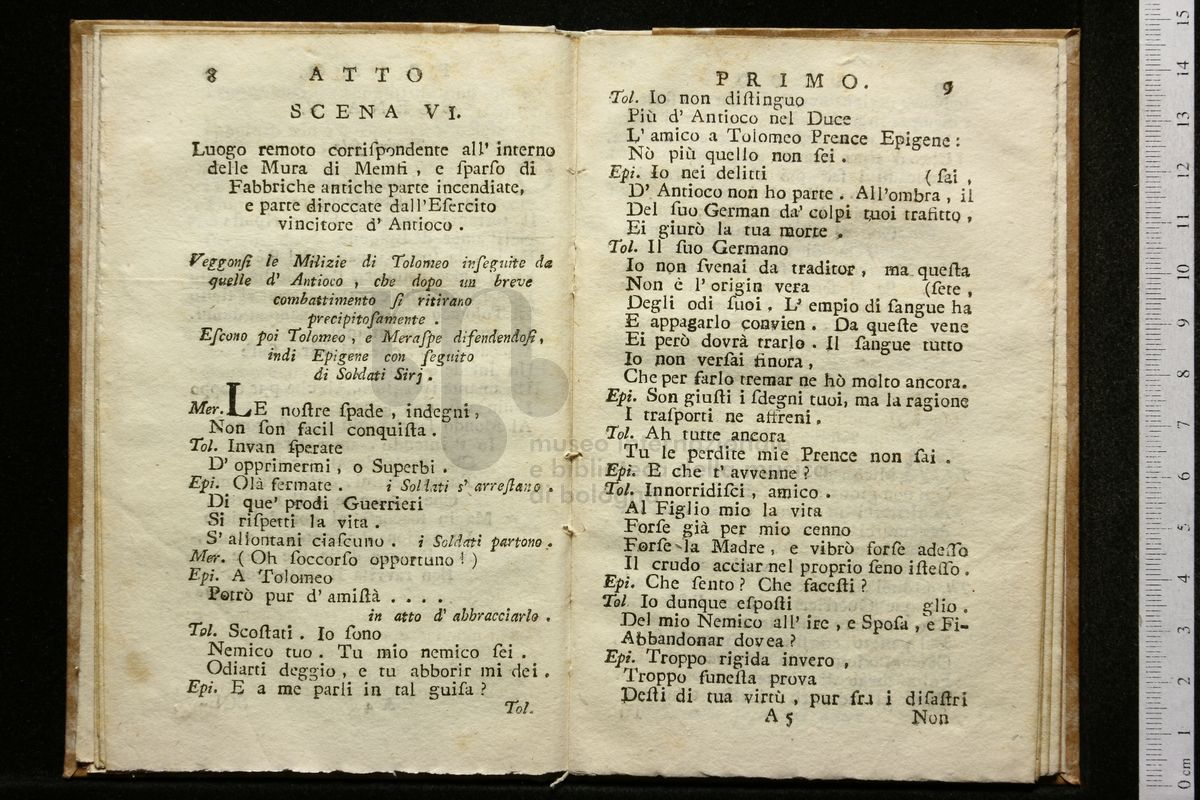 8 ATTO
SCENA VI.
Luogo remoto corriſpondente all' interno
delle Mura di Memfi , e ſparſo di
Fabbriche antiche parte incendiate,
e parte diroccate dall'Eſercito
vincitore d' Antioco .
Veggonſi le Milizie di Tolomeo inſeguite da
quelle d' Antioco , che dopo un breve
combattimento ſi ritirano
precipitoſamente .
Eſcono poi Tolomeo , e Meraſpe difendendoſi,
indi Epigene con ſeguito
di Soldati Sirj .
Mer. LE noſtre ſpade , indegni,
Non ſon facil conquiſta .
Tol. Invan ſperate
D' opprimermi , o Superbi .
Epi. Olà fermate . i Soldati s' arreſtano .
Di que' prodi Guerrieri
Si riſpetti la vita .
S' allontani ciaſcuno . i Soldati partono .
Mer. ( Oh ſoccorſo opportuno ! )
Epi. A Tolomeo
Potrò pur d' amiſtà . . . .
in atto d' abbracciarlo .
Tol. Scoſtati . Io ſono
Nemico tuo . Tu mio nemico ſei .
Odiarti deggio , e tu abborir mi dei .
Epi. E a me parli in tal guiſa ?
Tol.
PRIMO. 9
Tol. Io non diſtinguo
Più d' Antioco nel Duce
L' amico a Tolomeo Prence Epigene :
Nò più quello non ſei .
Epi. Io nei delitti (ſai ,
D' Antioco non ho parte . All'ombra , il
Del ſuo German da' colpi tuoi trafitto ,
Ei giurò la tua morte .
Tol. Il ſuo Germano
Io non ſvenai da traditor , ma queſta
Non è l' origin vera (ſete ,
Degli odi ſuoi . L' empio di ſangue ha
E appagarlo convien . Da queſte vene
Ei però dovrà trarlo . Il ſangue tutto
Io non verſai finora ,
Che per farlo tremar ne hò molto ancora.
Epi. Son giuſti i ſdegni tuoi, ma la ragione
I traſporti ne affreni .
Tol. Ah tutte ancora
Tu le perdite mie Prence non ſai .
Epi. E che t' avvenne ?
Tol. Innorridiſci , amico .
Al Figlio mio la vita
Forſe già per mio cenno
Forſe la Madre , e vibrò forſe adeſſo
Il crudo acciar nel proprio ſeno iſteſſo .
Epi. Che ſento ? Che faceſti ?
Tol Io dunque eſpoſti glio .
Del mio Nemico all' ire , e Spoſa , e Fi-
Abbandonar dovea ?
Epi. Troppo rigida invero ,
Troppo funeſta prova
Deſti di tua virtù , pur fra i diſaſtri
A 5 Non
museo internazionale
e biblioteca della musica
di bologna
0 cm 1 2 3 4 5 6 7 8 9 10 11 12 13 14 15